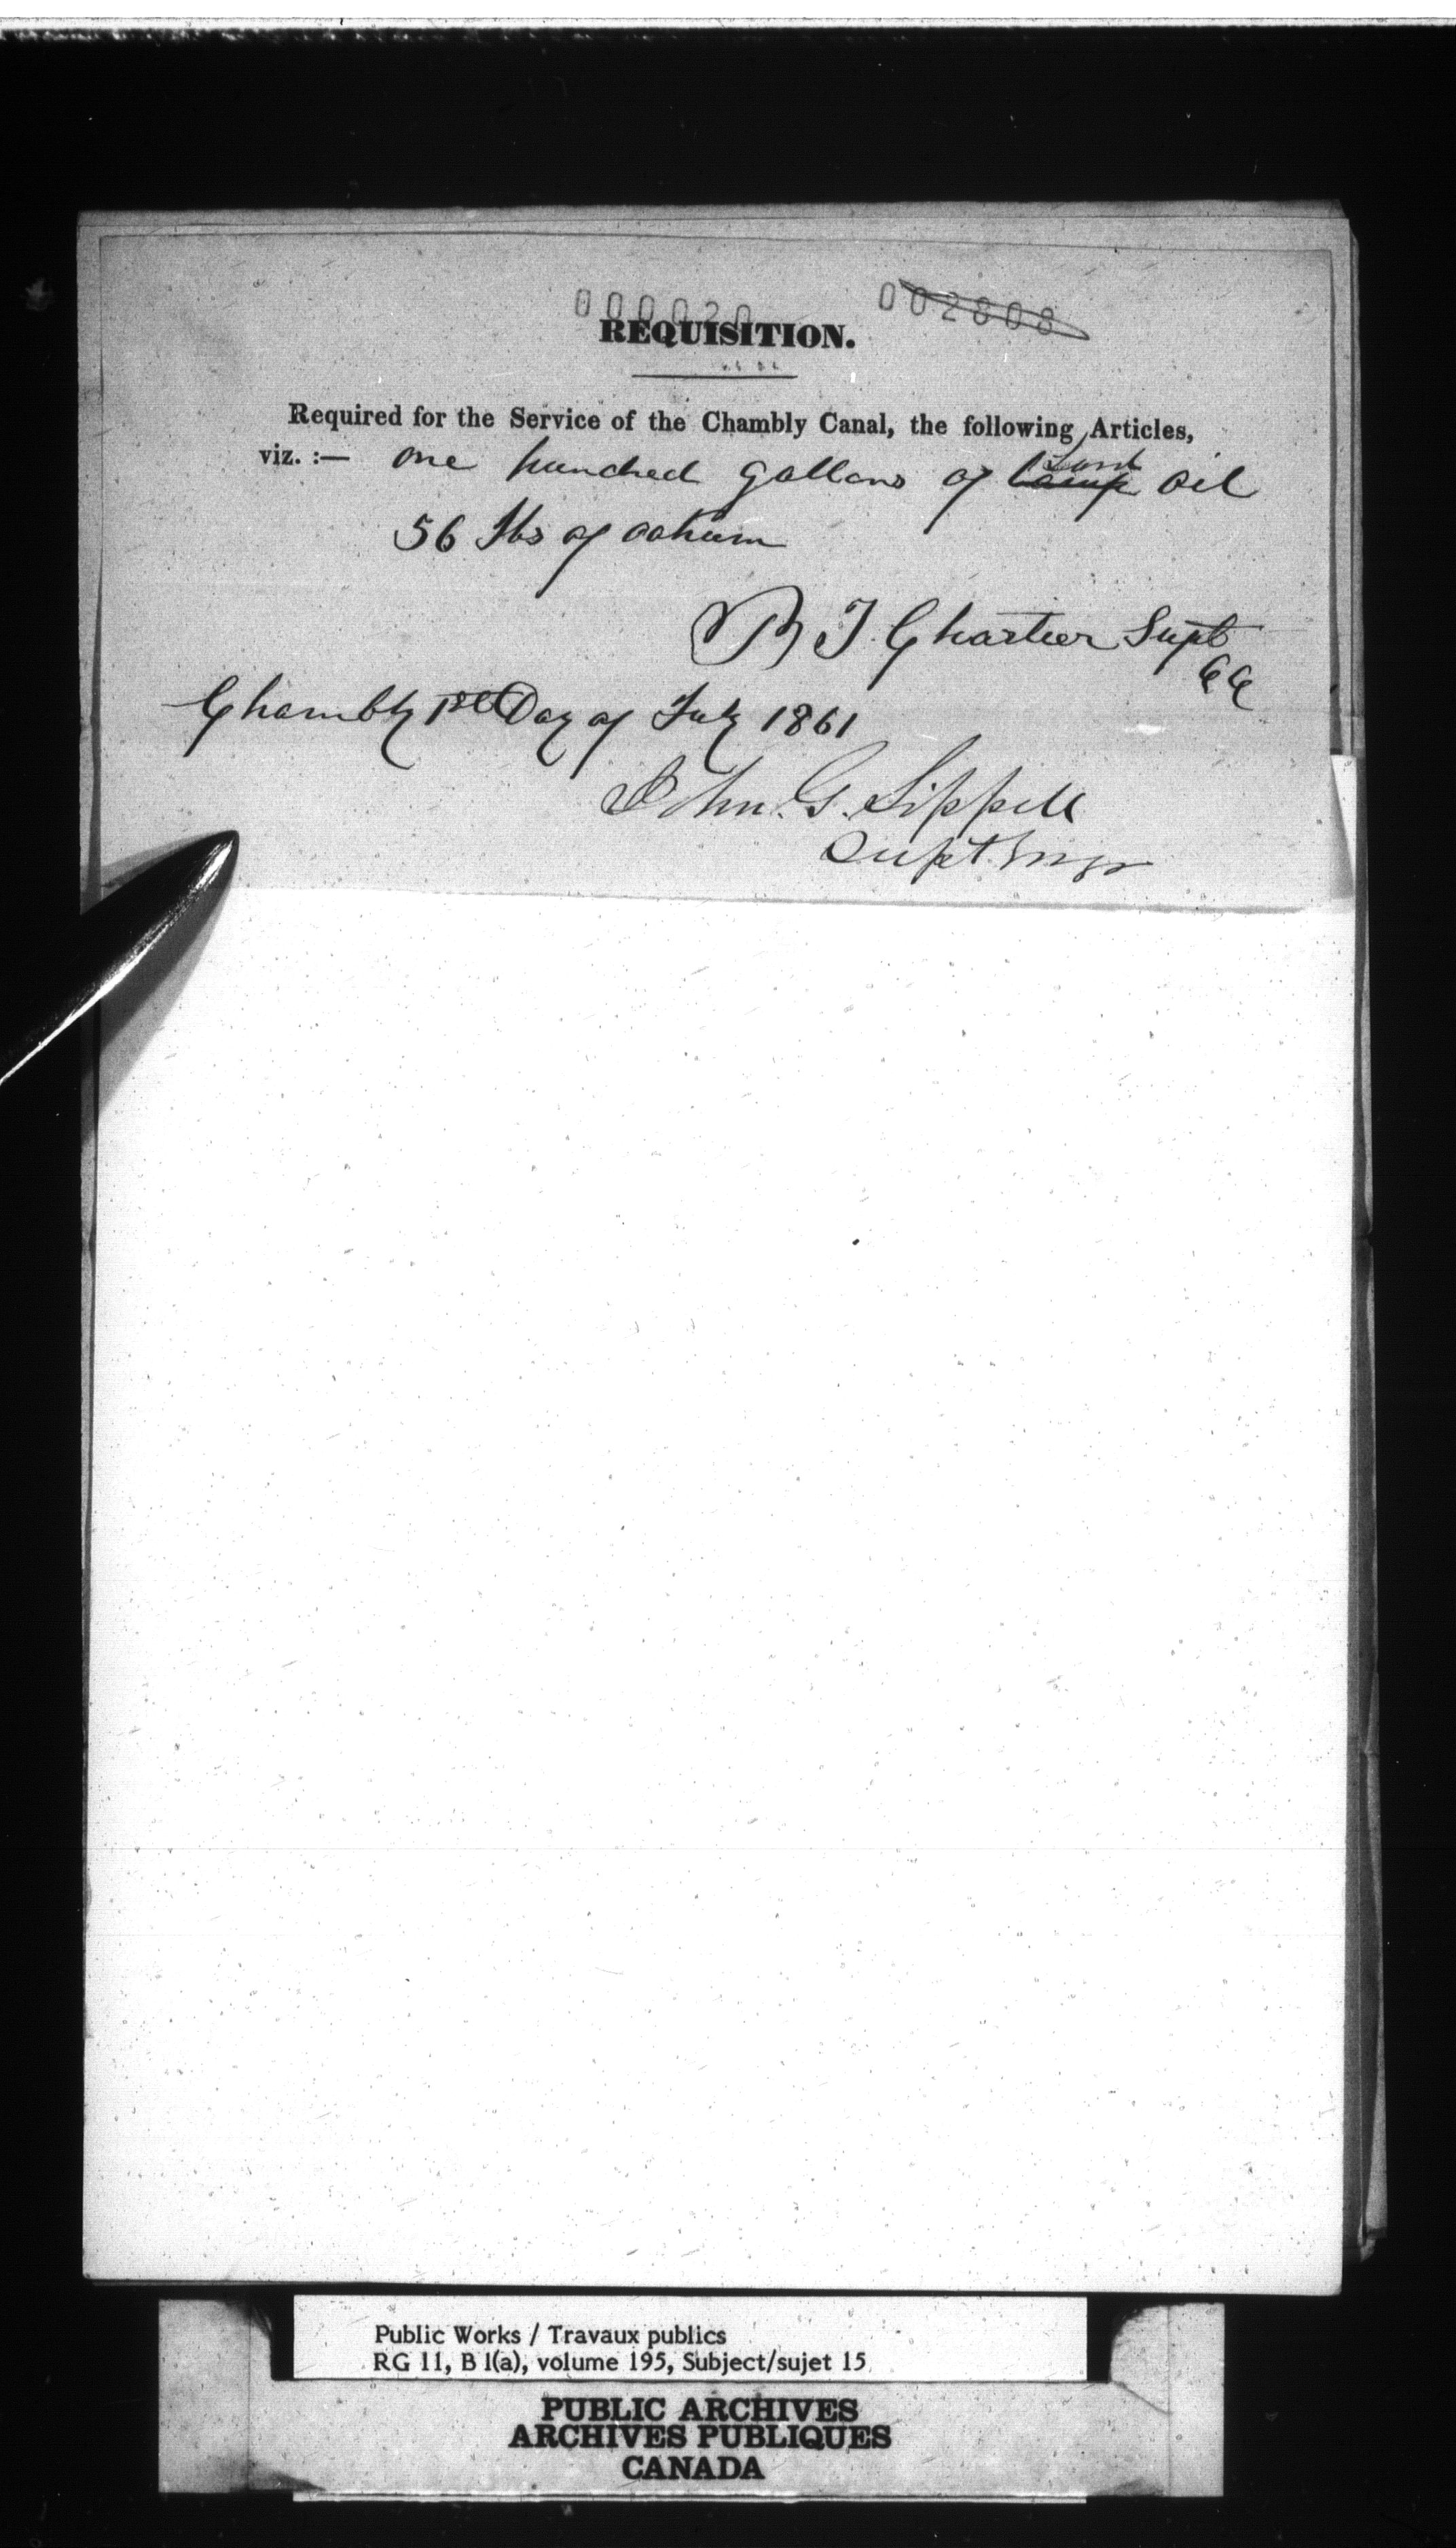 000020 002808
REQUISITION.
Required for the Service of the Chambly Canal, the following Articles,
viz. :— one hundred gallons of lamp Lard oil
56 lbs of oakum
B J. Chartier Supt
CC
Chambly 1st Day of July 1861
John. G. Sippell
Supt. Engr
Public Works / Travaux publics
RG 11, B 1(a), volume 195, Subject/sujet 15
PUBLIC ARCHIVES
ARCHIVES PUBLIQUES
CANADA